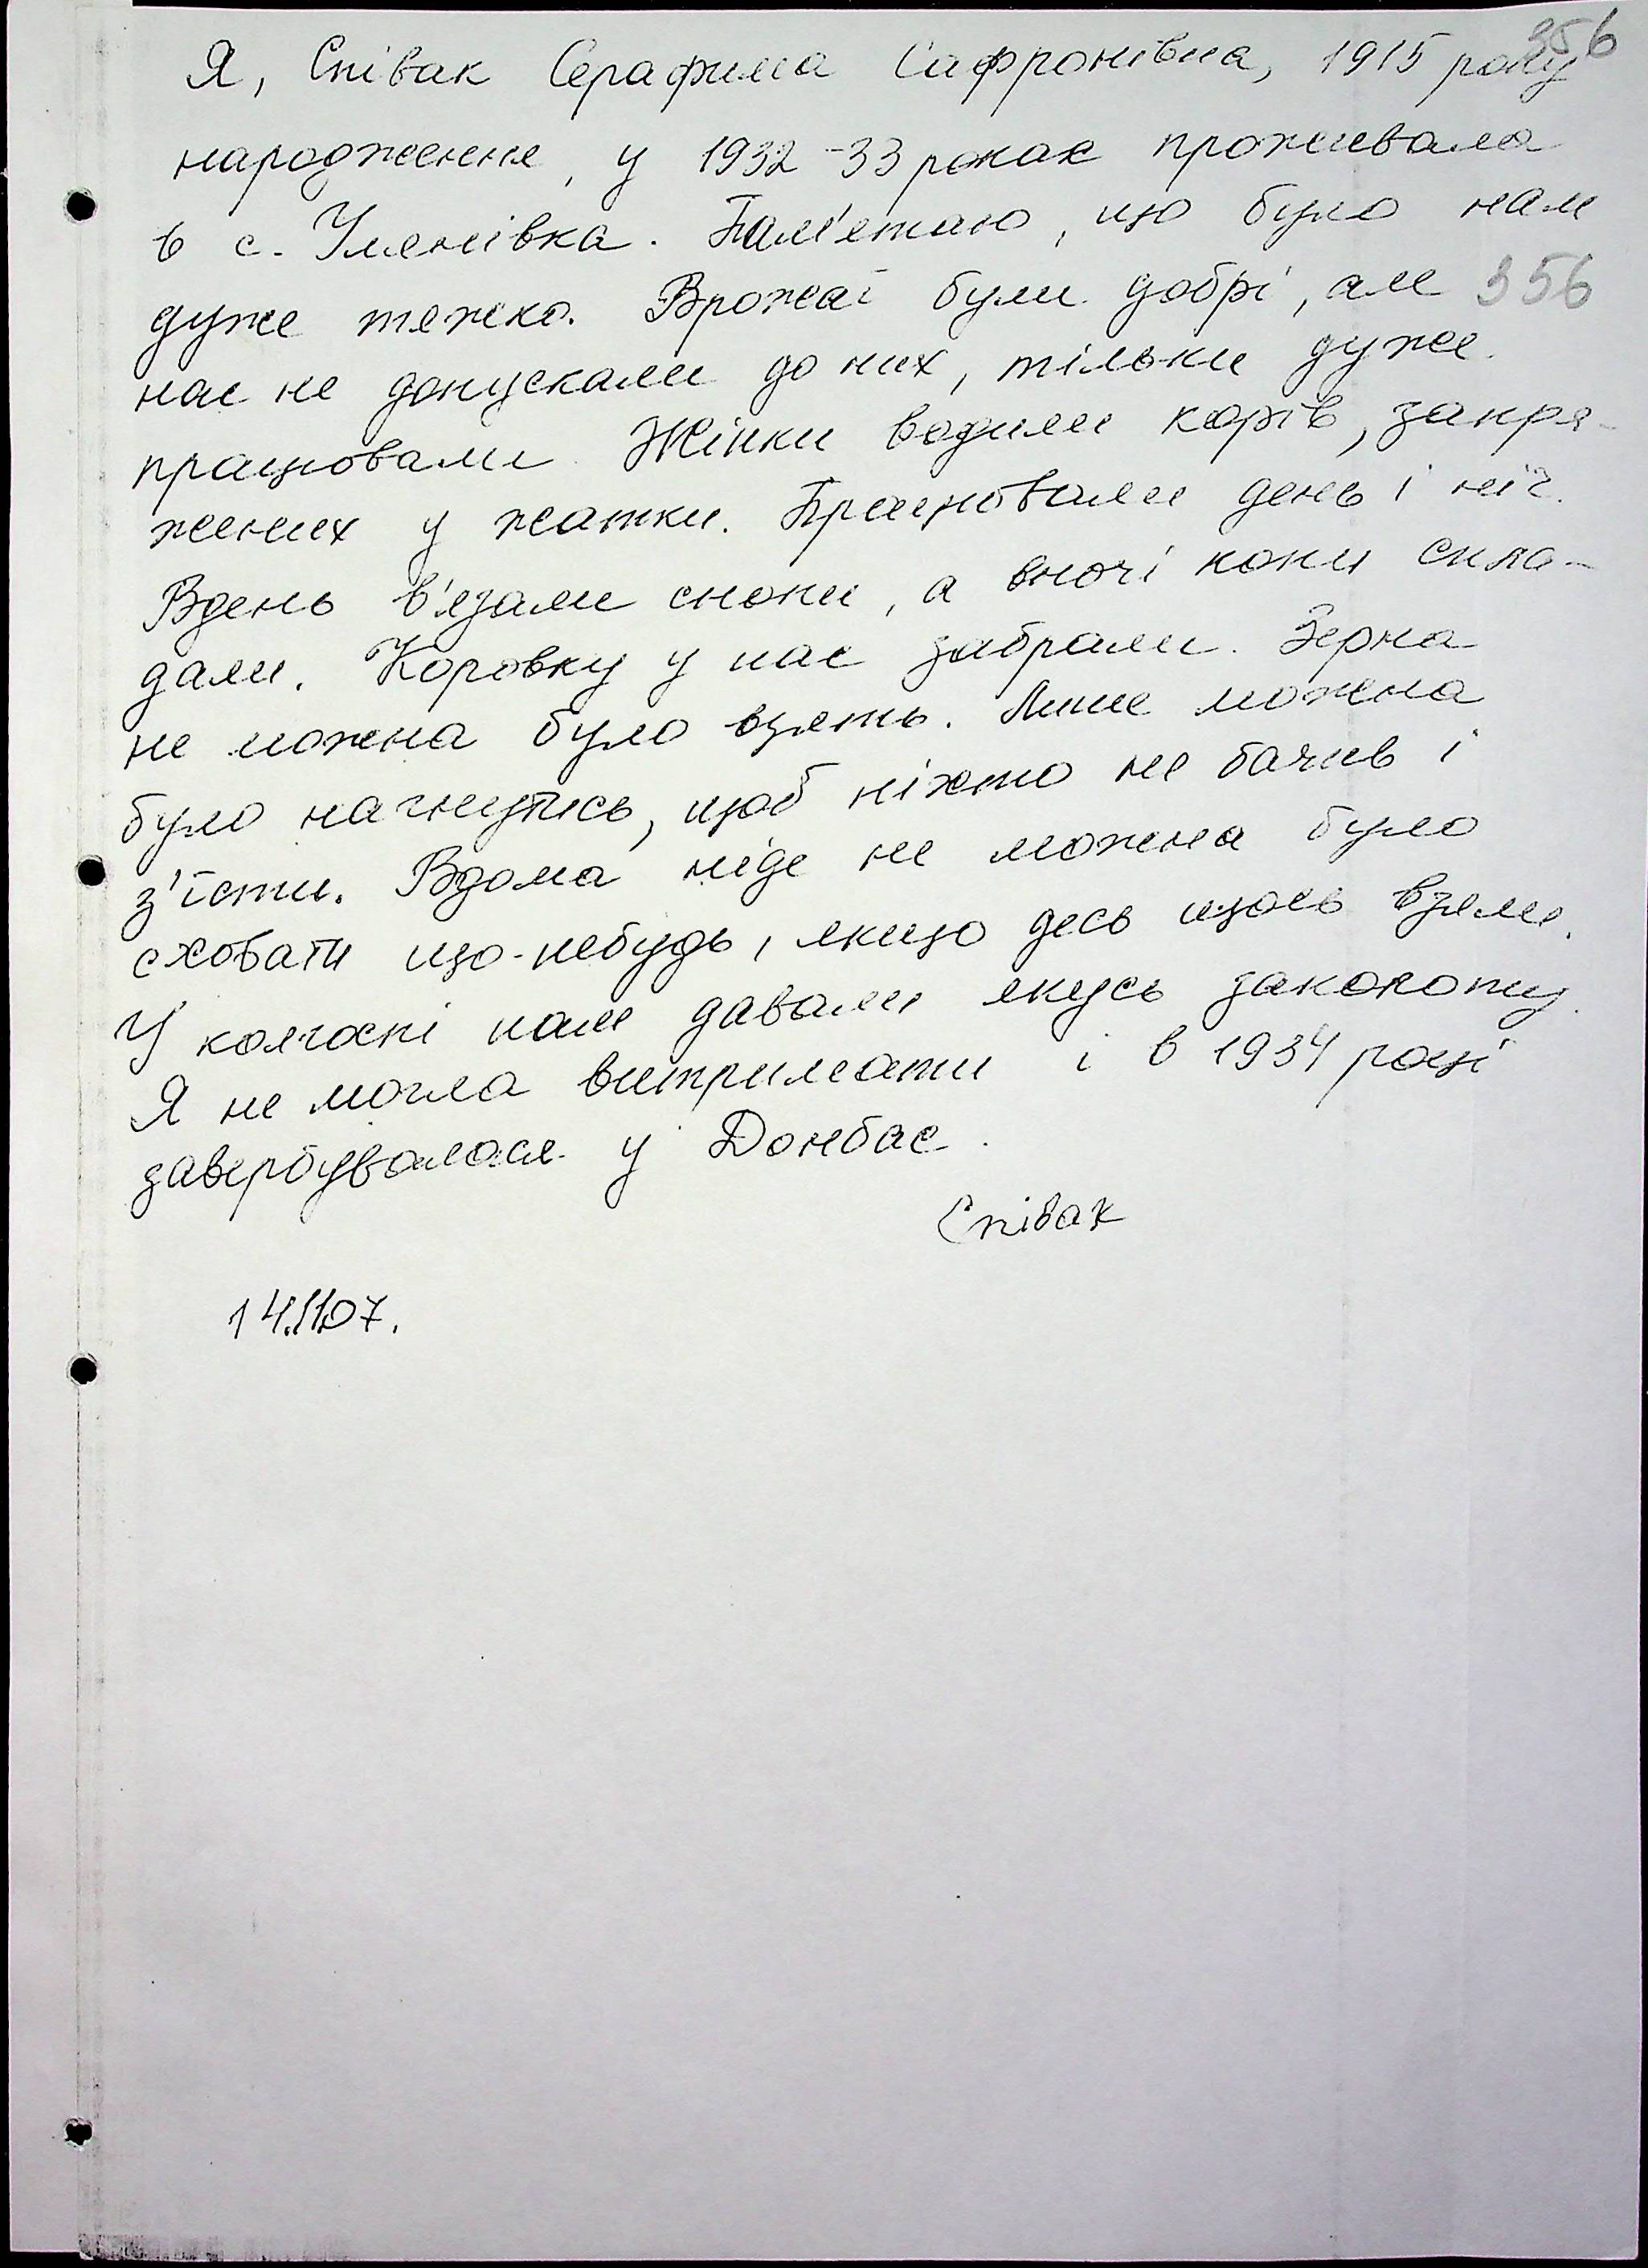 356
Я, Співак Серафима Сафронівна, 1915 року
народження, у 1932-33 роках проживала
в с. Улянівка. Пам'ятаю, що було нам
дуже тяжко. Врожаї були добрі, але 356
нас не допускали до них, тільки дуже
працювали. Жінки водили корів, запря-
жених у жатки. Працювали день і ніч.
Вдень в'язали снопи, а вночі копи скла-
дали. Коровку у нас забрали. Зерна
не можна було взять. Лише можна
було нагнутись, щоб ніхто не бачив і
з'їсти. Вдома ніде не можна було
сховати що-небудь, якщо десь щось взяли.
У колгоспі нам давали якусь заколоту.
Я не могла витримати і в 1934 році
завербувалася у Донбас.
Співак
14.11.07.